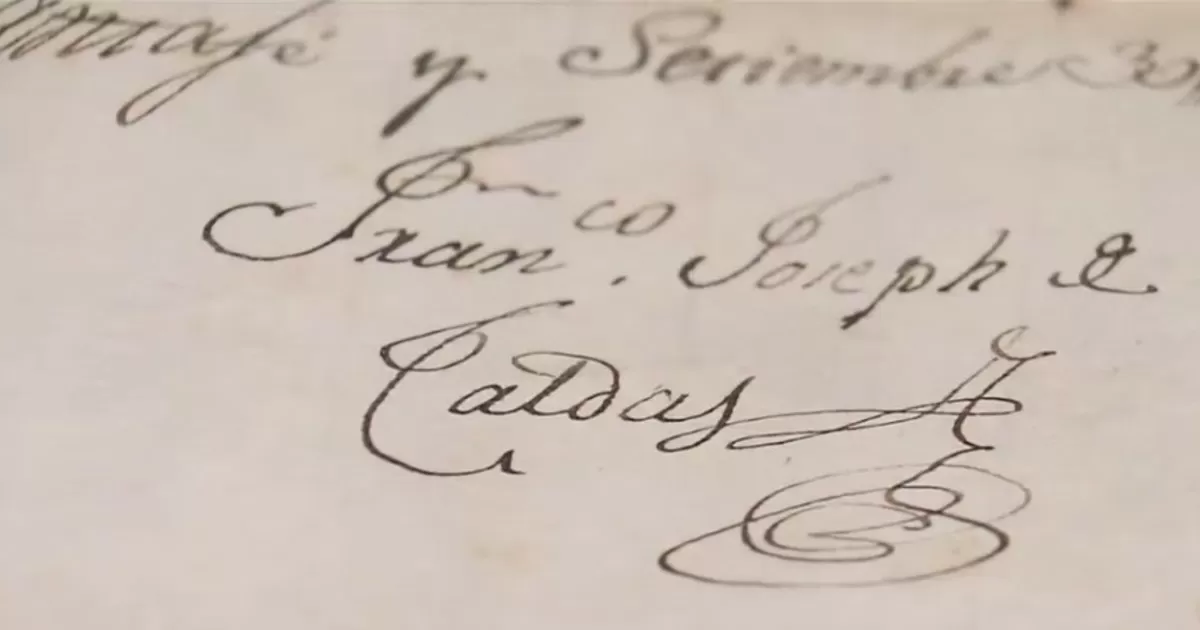 Santafé y Septiembre 30,
Fran.co Joseph de
Caldas